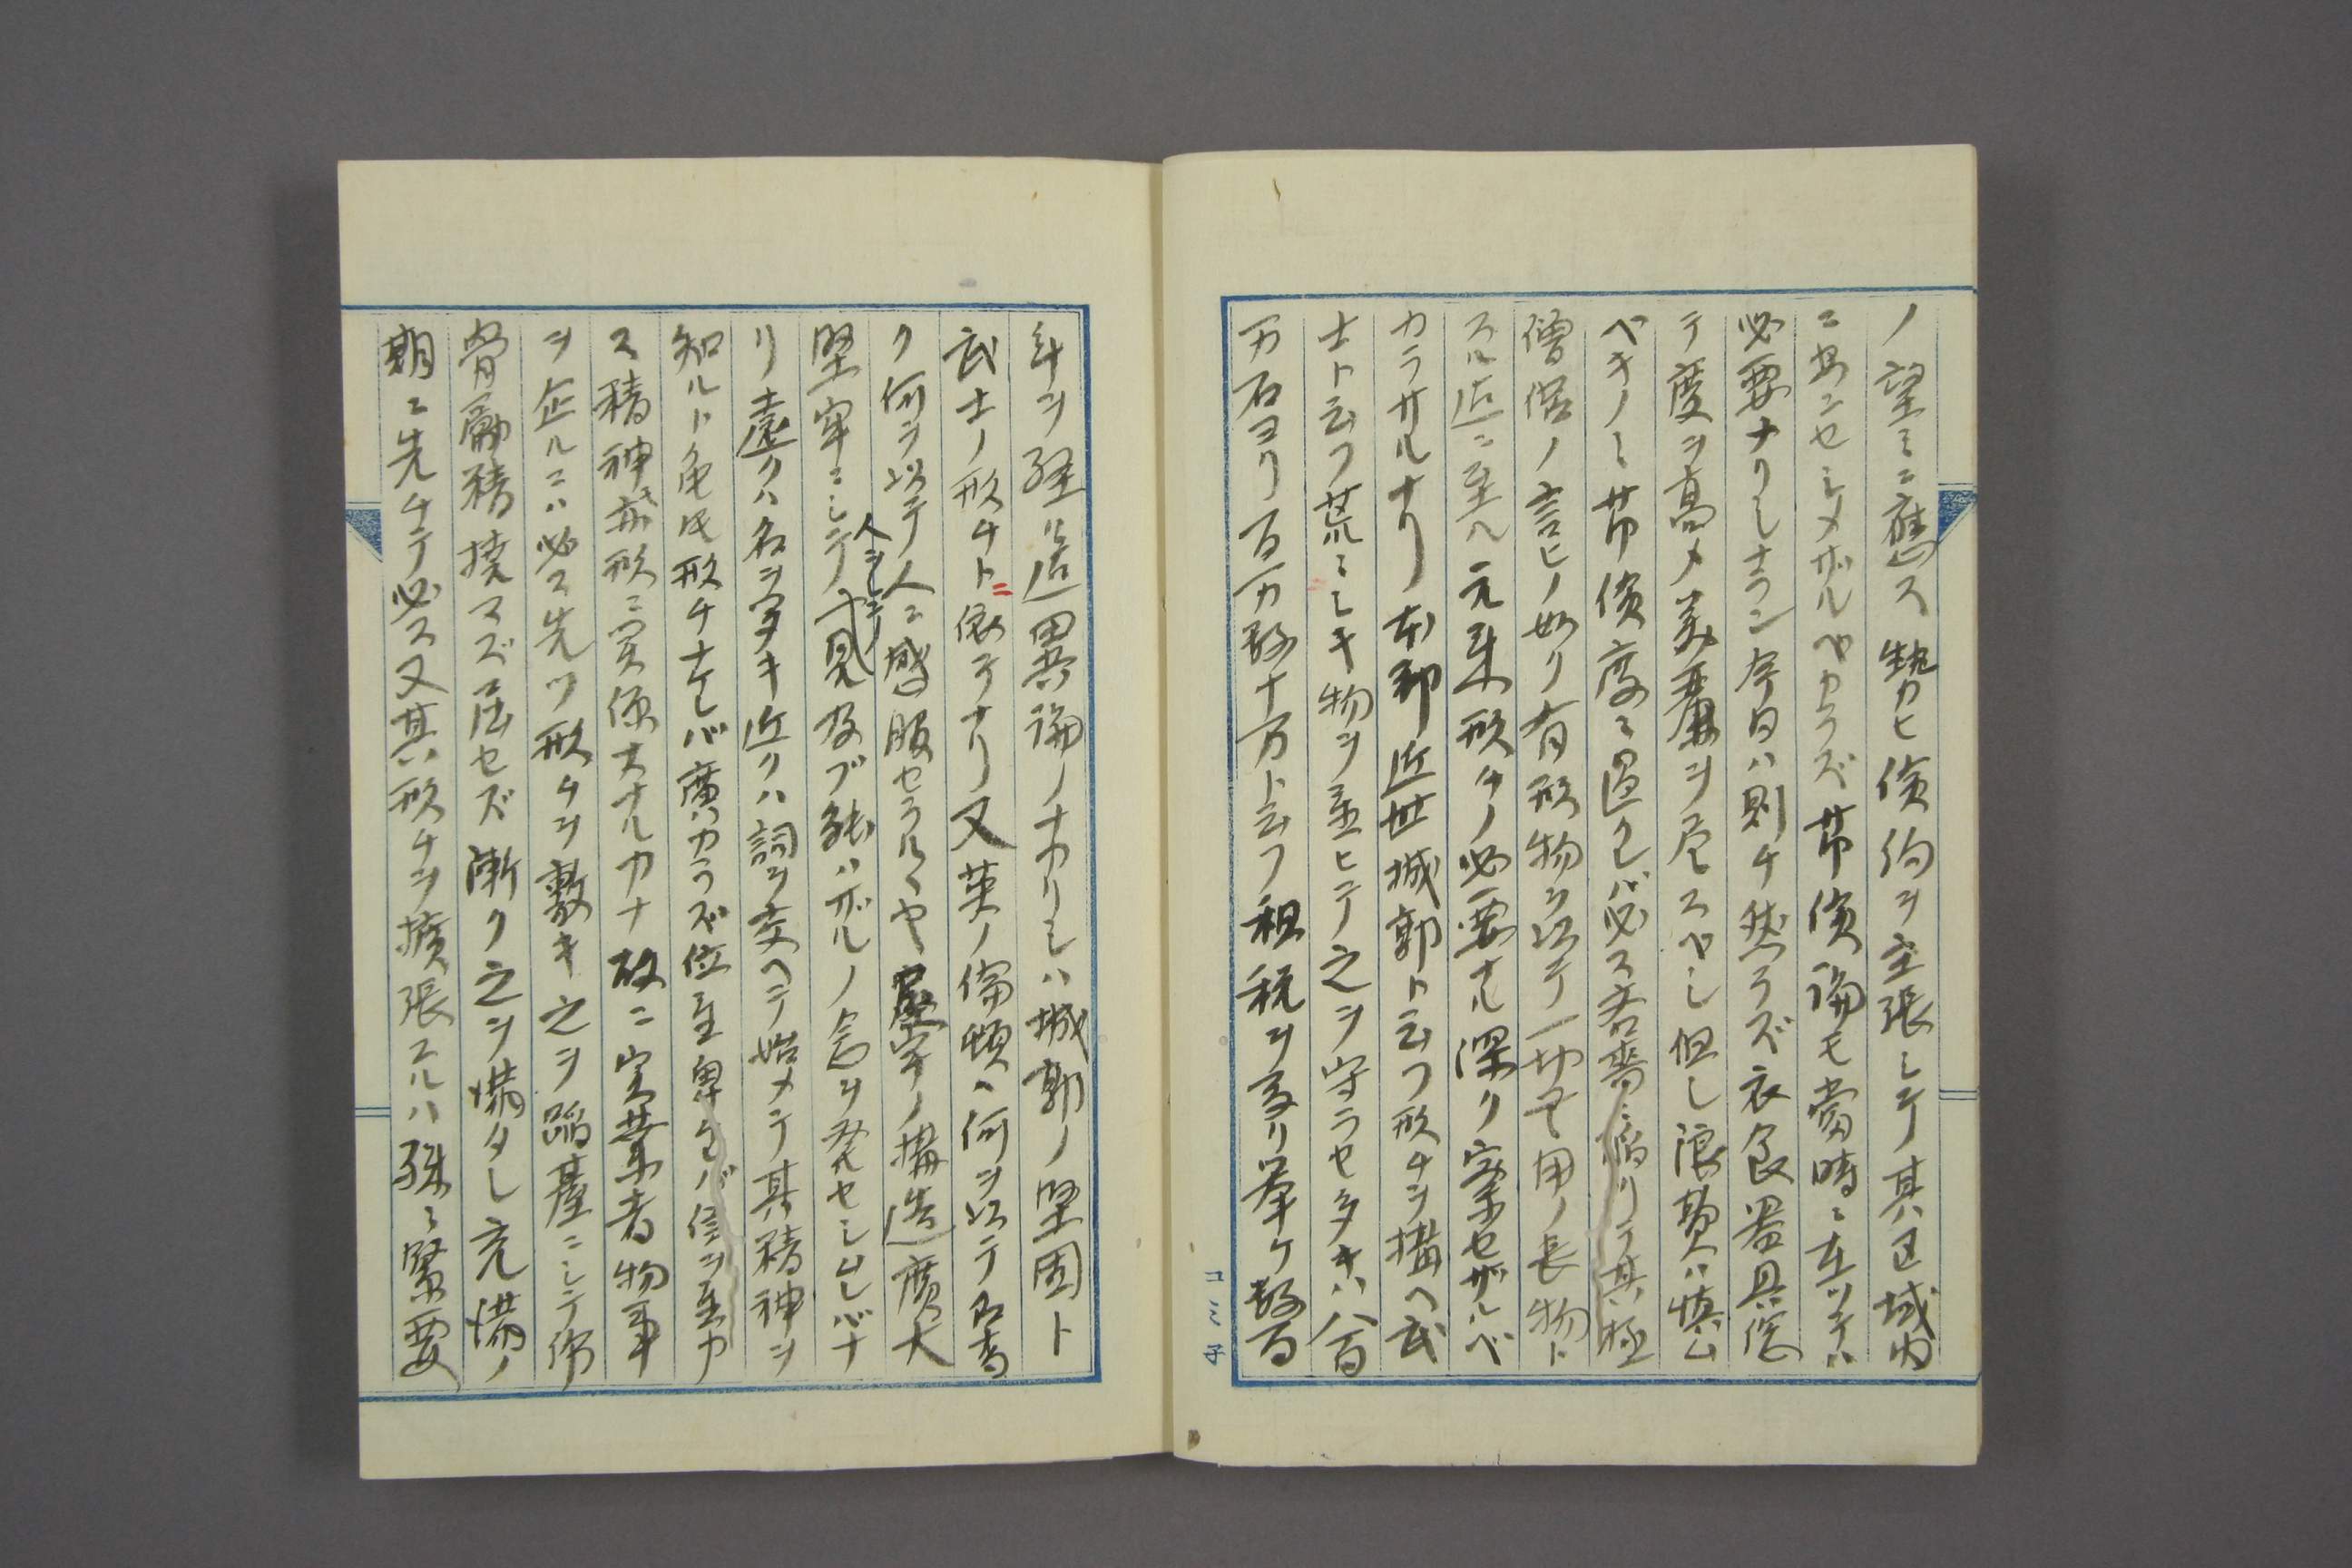 ノ望ミニ應ス勢カヒ儉約ヲ主張シテ其ハ区域内
ニ安ンセシメザルベカラズ節儉論モ當時ニ在ツテハ
必要ナリシナラン今日ハ則チ然ラズ衣食器具儘
テ度ヲ高メ美麗ヲ尽スベシ但シ浪費ハ慎ム
ベキノミ節儉度ニ過レバ必ス吝嗇ニ陥リテ其極
僧侶ノ言ヒノ如ク有形物ヲ以テ一切無用ノ長物ト
スルニ至ル元来形チノ必要ナル深ク案セザルベ
カラサルナリ本邦近世城郭ト云フ形チヲ構ヘ武
士ト云フ荒ミシキ物ヲ養ヒテ之ヲ守ラセタキハ八百
万石ヨリ百万数十万ト云フ租税ヲ取リ挙ケ数百
年ヲ経ル迄異論ノナカリシハ城郭ノ堅固ト
武士ノ形チトニ依テナリ又英ノ倫頓ハ何ヲ以テ名高
ク何ヲ以テ人ニ感服セラルヽヤ屋宇ノ構造廣大
堅牢ニシテ人ヲシテ見及ブ能ハザルノ念ヲ発セシムレバナ
リ遠クハ名ヲ聞キ近クハ詞ヲ交ヘテ始メテ其精神ヲ
知ルト雖尼形チナケレバ廣カラズ位至卑ケレバ信ヲ置カ
ス精神ガ形ニ実体大ナルカナ故ニ実業者物事
ヲ企ルニハ必ス先ツ形チヲ敷キ之ヲ踏臺ニシテ
勵精撓マズ屈セズ漸ク之ヲ備タレ充備ノ
期ニ先チテ必ス又其ハ形チヲ擴張スルハ殊ニ緊要
コミ子